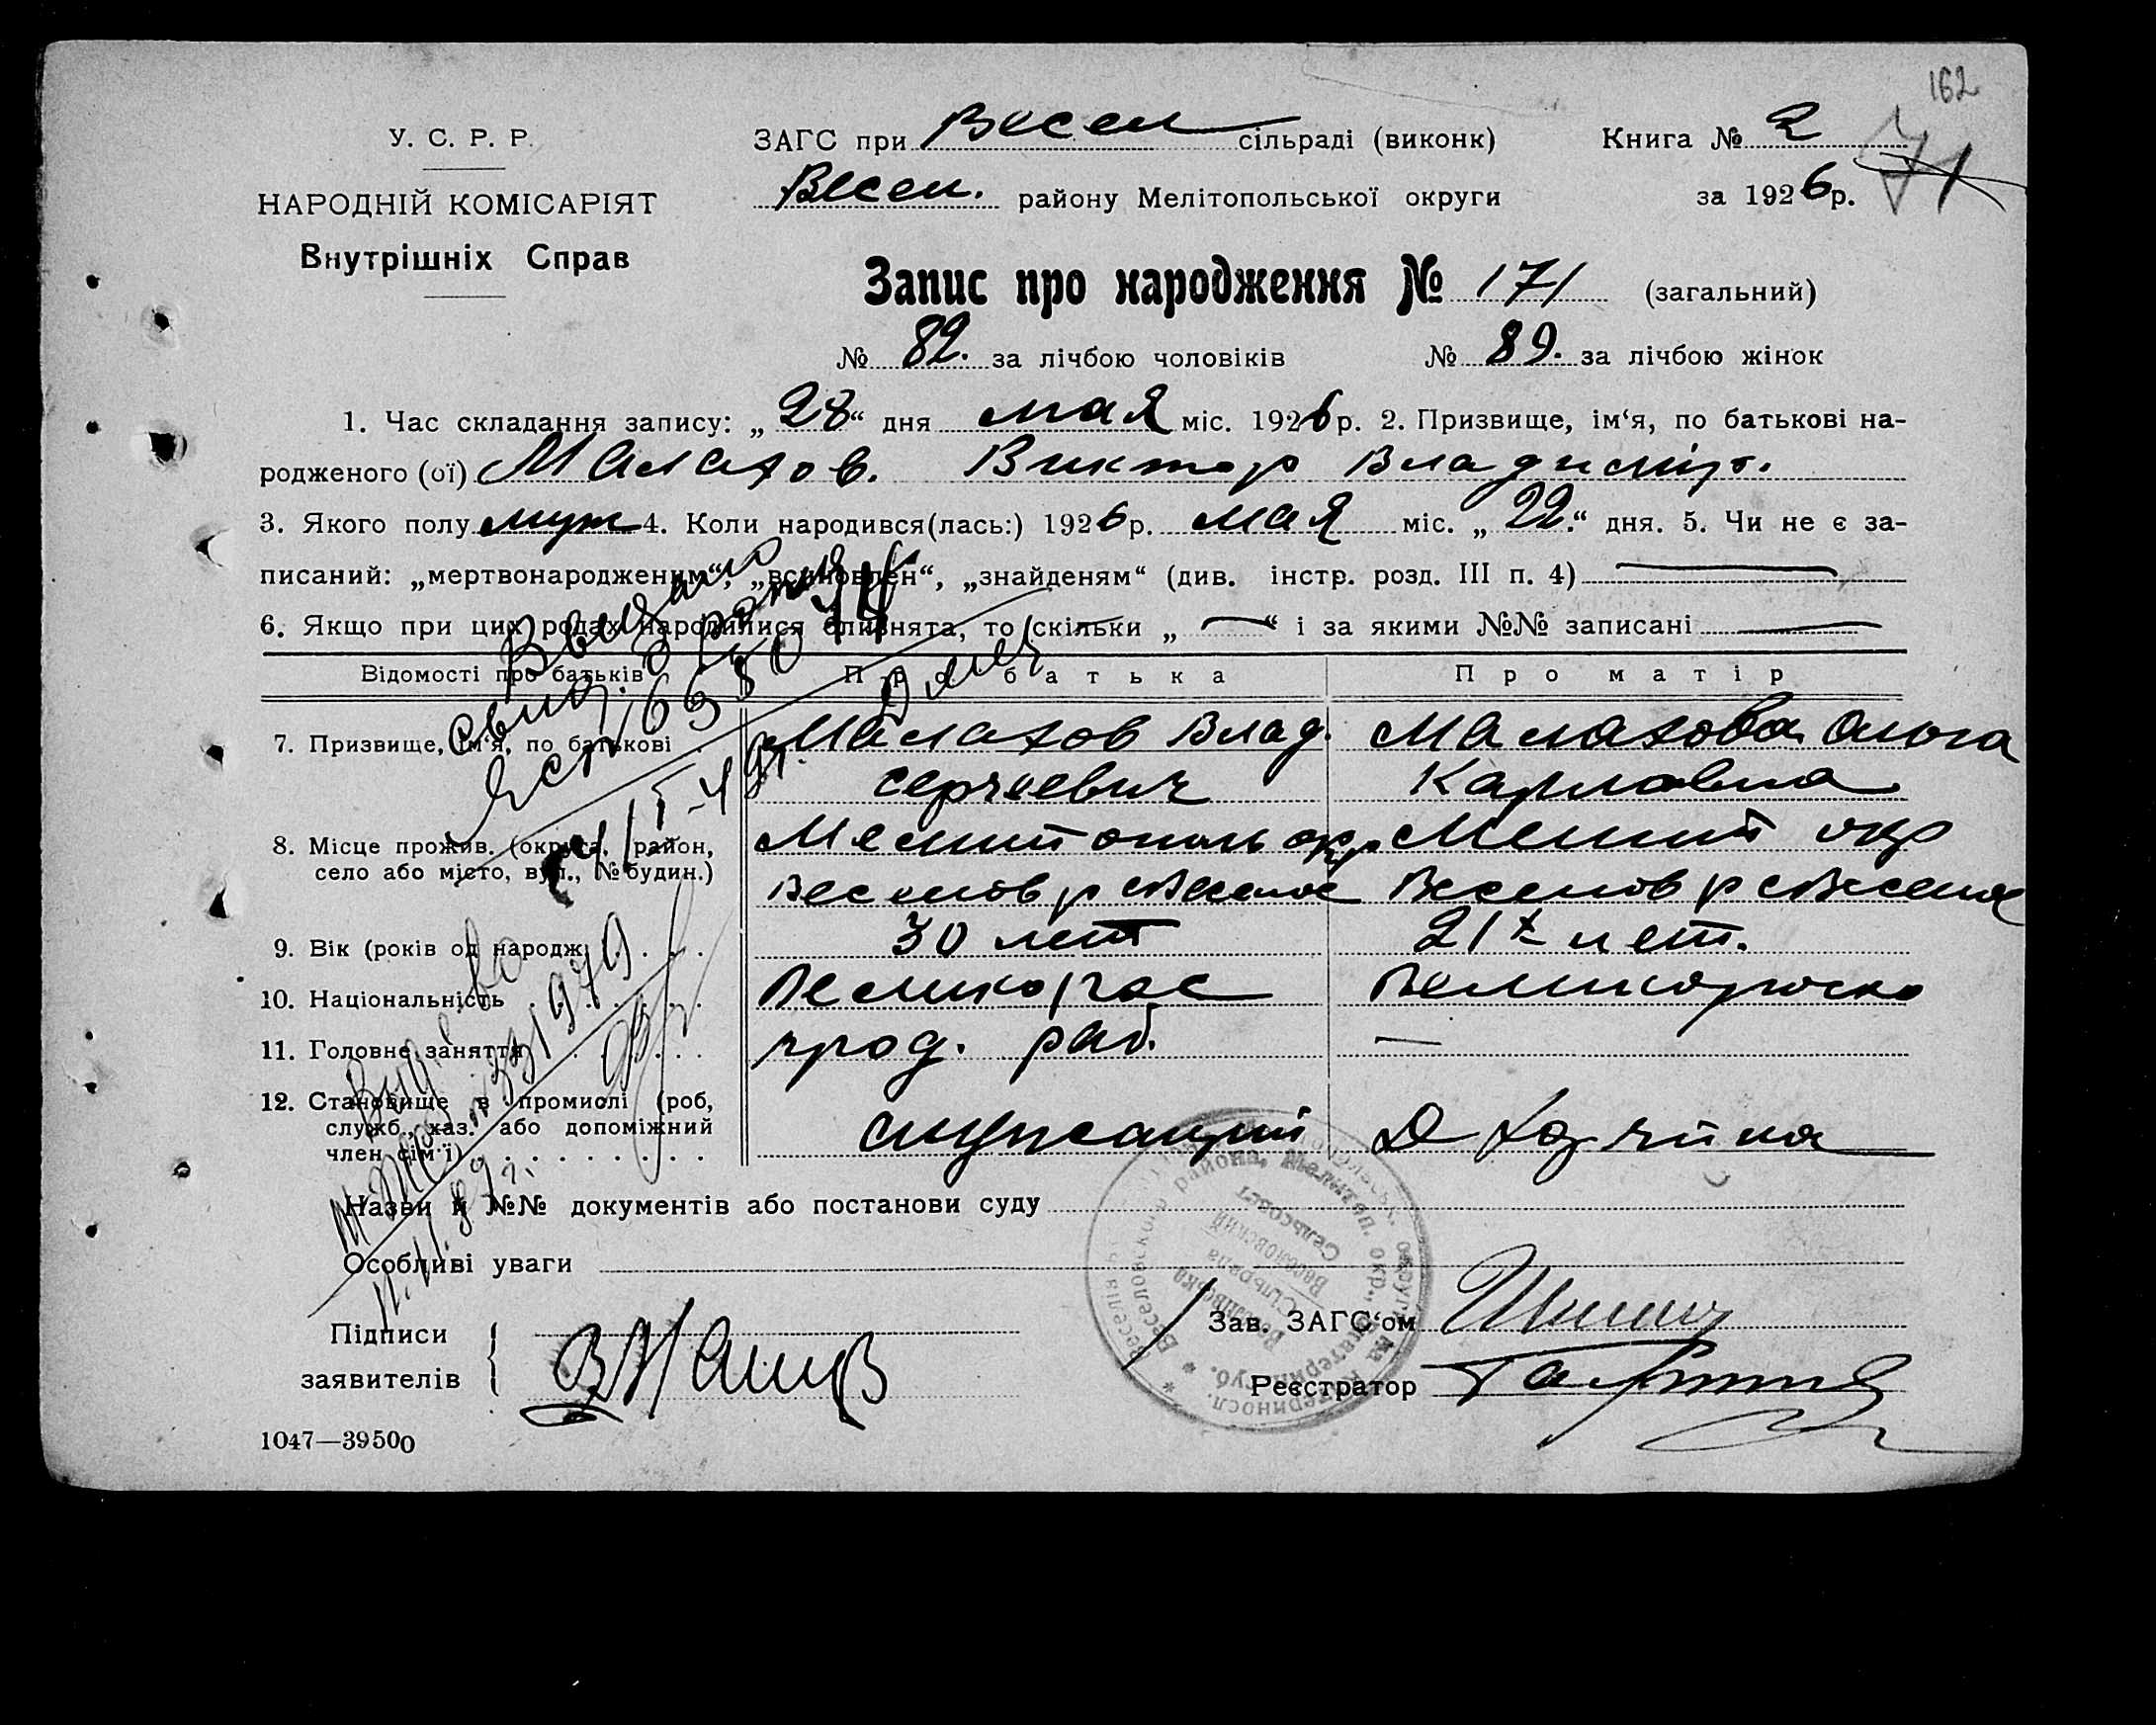 162
У. С. Р. Р.
НАРОДНІЙ КОМІСАРІЯТ
Внутрішніх Справ
ЗАГС при Весел сільраді (виконк) Книга № 2
71
Весел. району Мелітопольської округи за 1926 р.
Запис про народження № 171 (загальний)
№ 82. за лічбою чоловіків № 89. за лічбою жінок
1. Час складання запису: „28“ дня мая міс. 1926 р. 2. Призвище, ім‘я, по батькові на-
родженого (ої) Малахов. Виктор Владимір.
3. Якого полу муж 4. Коли народився(лась:) 1926 р. мая міс. „22.“ дня. 5. Чи не є за-
писаний: „мертвонародженим“, „встановлен“, „знайденям“ (див. інстр. розд. III п. 4) —
6. Якщо при цих родах народилися близнята, то скільки „—“ і за якими №№ записані —
Відомості про батьків Про батька Про матір
7. Призвище, ім‘я, по батькові . Малахов Влад. Малахова Ольга
Сергеевич Карловна
8. Місце прожив. (округа, район, Мелитополь окр. Мелит окр
село або місто, вул., № будин.) Веселов р с Веселое Веселов р с Веселое
9. Вік (років од народж) . . . 30 лет 21 лет.
10. Національність . . . . . . Великорос Великоросска
11. Головне заняття . . . . . прод. раб. —
12. Становище в промислі (роб,
служб., хаз. або допоміжний служащий Д хозяйка
член сім‘ї) . . . . . . . . .
Назви й №№ документів або постанови суду
Особливі уваги
Підписи
заявителів
Зав. ЗАГС‘ом
Реєстратор
1047—39500
Веселовского района, Мелитоп. окр., Екатериносл. губ.
Веселівська
Сільрада
Веселовский
Сельсовет